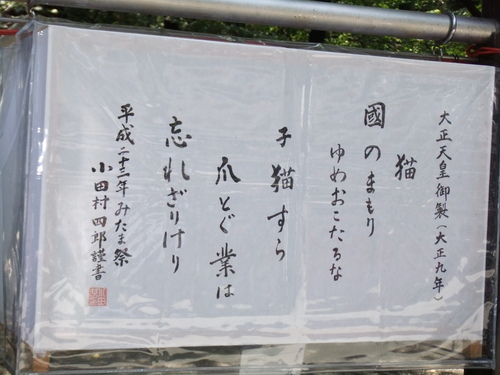 大正天皇御製（大正九年）
猫
國のまもり
ゆめおこたるな
子猫すら
爪とぐ業は
忘れざりけり
平成二十三年みたま祭
小田村四郎謹書